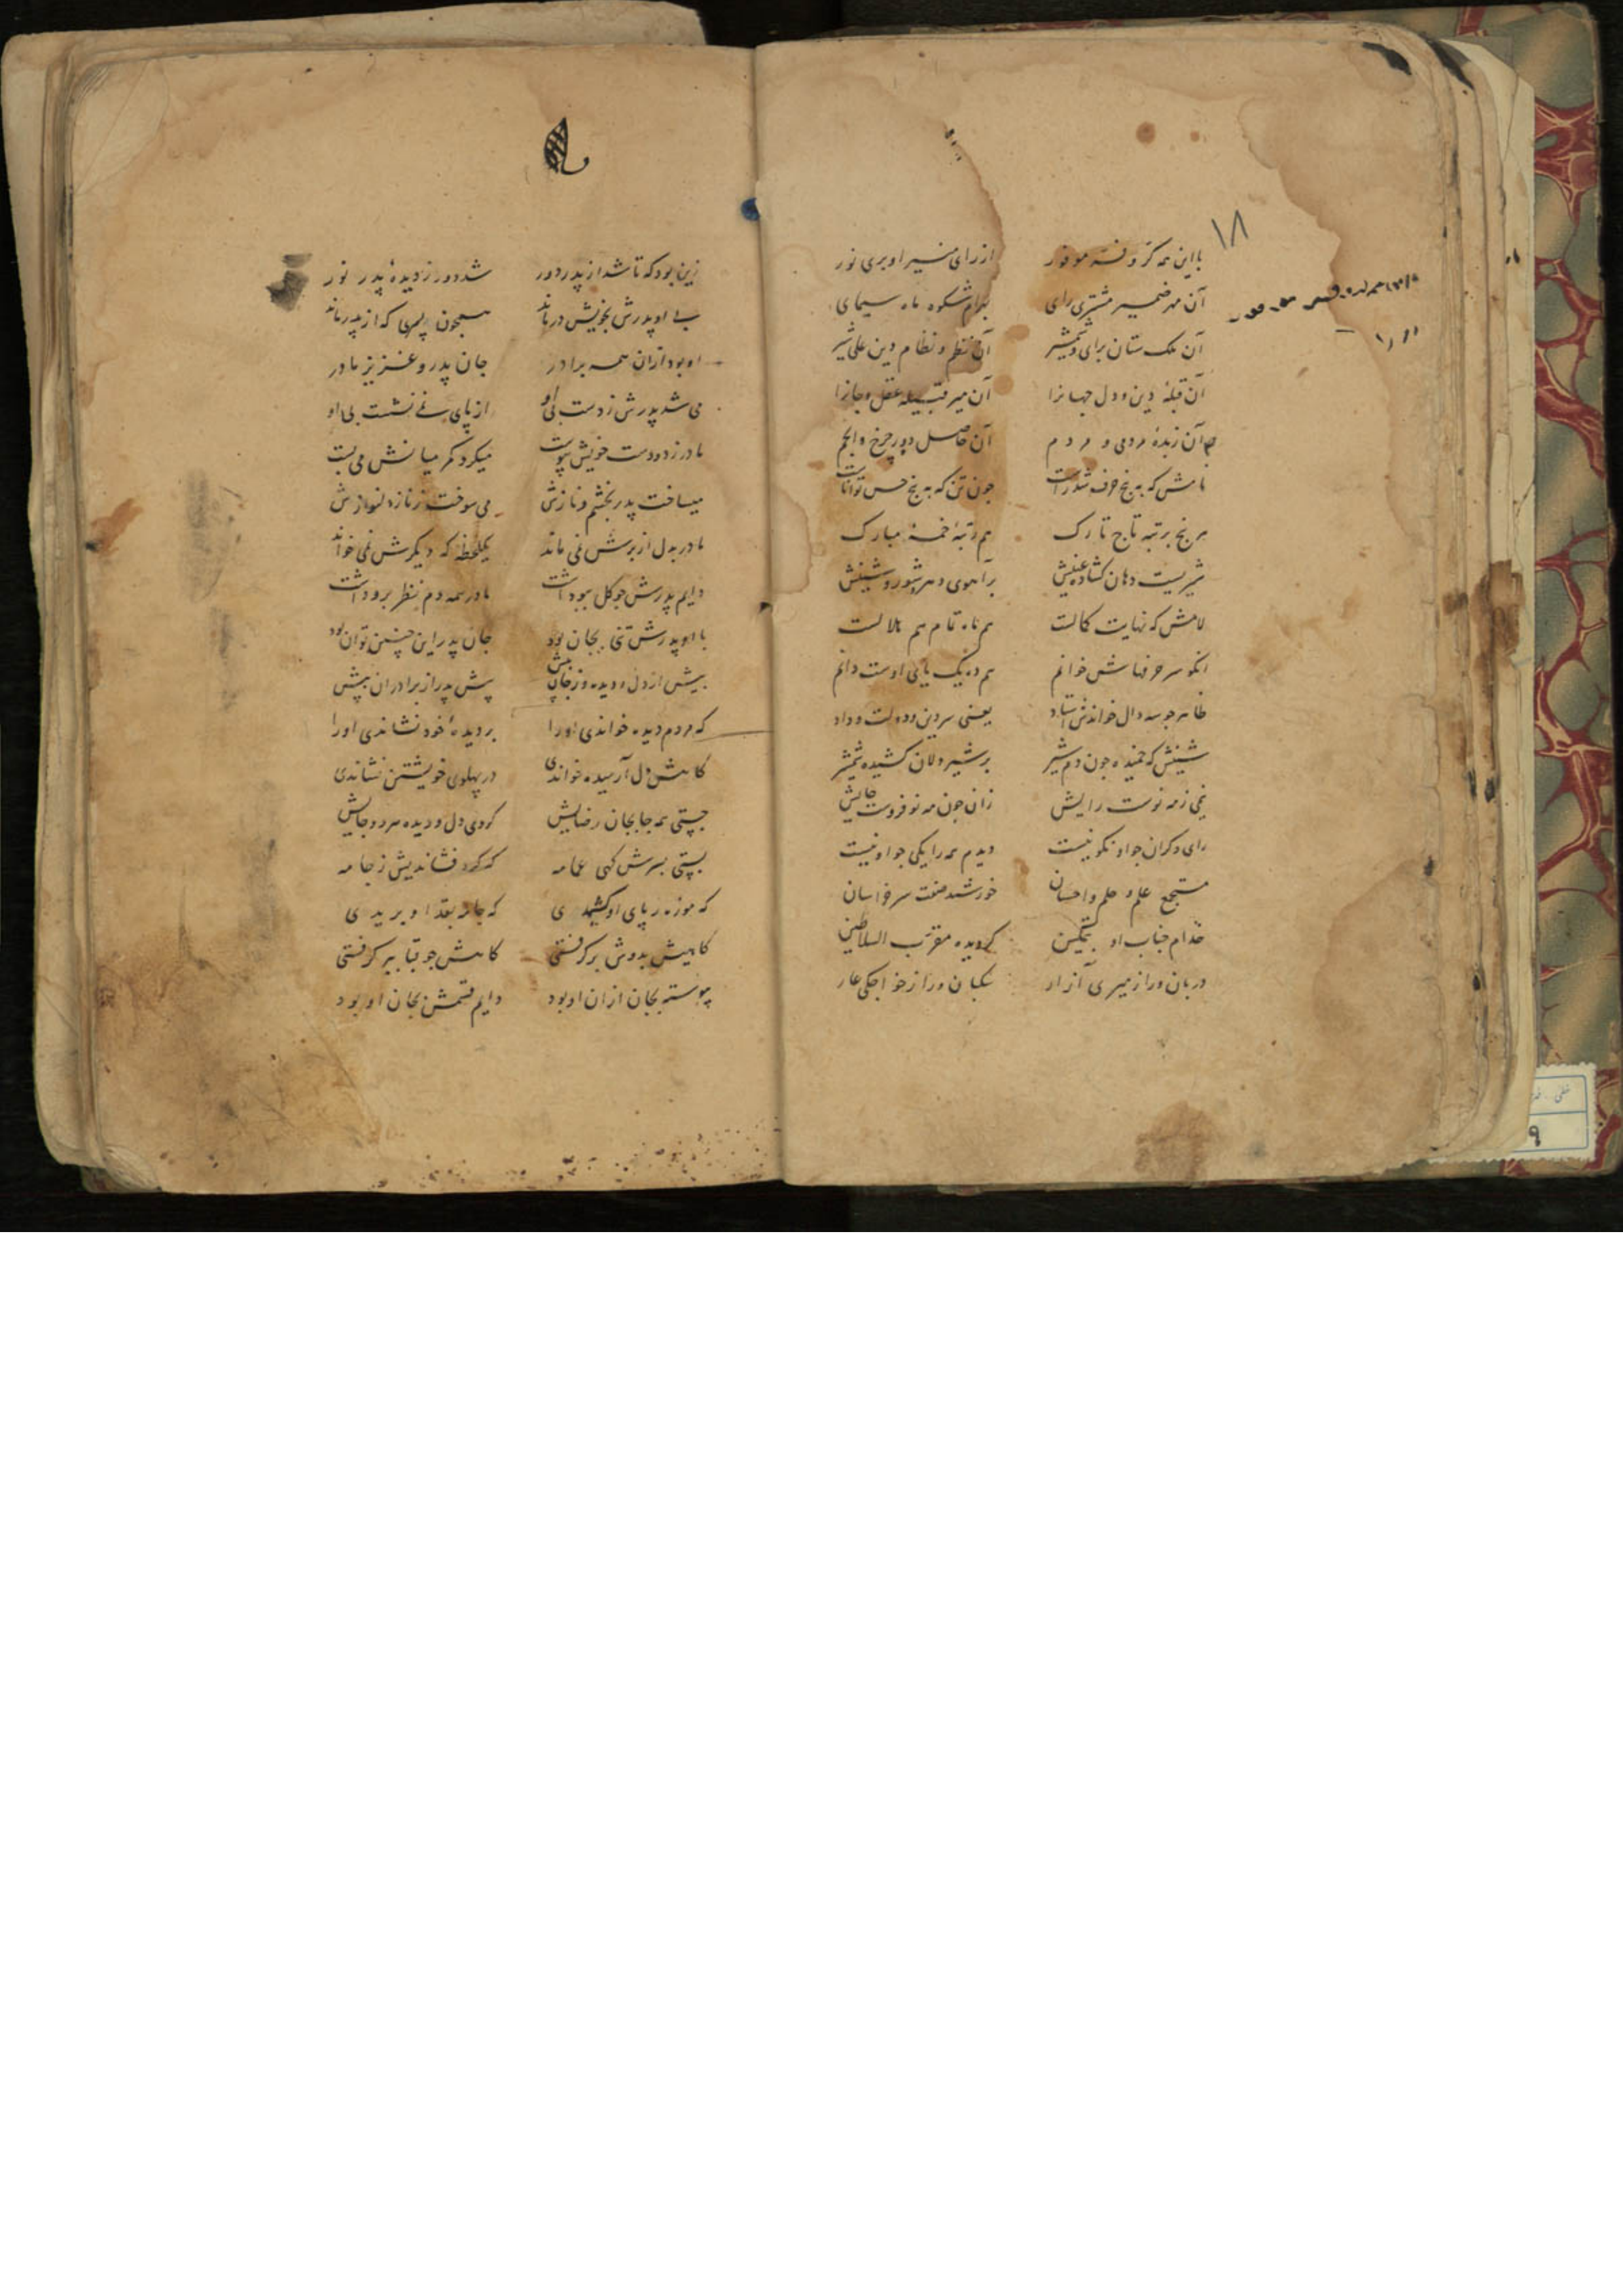 ۱۸
با این همه کرّ و فرّ موفور    از رای منیر او بری نور
آن مهر ضمیر مشتری رای    بهرام شکوه ماه سیمای
آن ملک ستان برای و شمشیر    آن نظم و نظام دین علی شیر
آن قبلهٔ دین و دل جهانرا    آن میر قبیله عقل و جانرا
آن زبدهٔ مردمی و مردم    آن حاصل دور چرخ و انجم
نامش که به پنج حرف شد راست    چون تن که به پنج حس تواناست
هر پنج برتبه تاج تارک    هم رتبهٔ خمسهٔ مبارک
شیریست دهان کشاده عینش    بر آهوی و شینش
لامش که نهایت کمالست    هم ماه تمام هم هلالست
انکو سر حرفهاش خوانم    هم ده یک یای اوست دانم
ظاهر چو سه دال خواندش استاد    یعنی سر دین و دولت و داد
شینش که خمیده چون دم شیر    بر شیر دلان کشیده شمشیر
نیمی ز مه نوست رایش    زان چون مه نو فزوست جایش
رای دکران چو او نکو نیست    دیدم همه را یکی چو او نیست
مستجمع علم و حلم و احسان    خورشید صفت سر خراسان
خدام جناب او بتمکین    کردیده مقرّب السلاطین
دربان ورا ز میری آزار    سکبان ورا ز خواجکی عار
زین بود که تا شد از پدر دور    شد دور ز دیدهٔ پدر نور
بی او پدرش بخویش درماند    همچون پسری که از پدر ماند
او بود ازان همه برادر    جان پدر و عزیز مادر
می شد پدرش ز دست بی او    از پای نمی نشست بی او
مادر ز دو دست خویش پیوست    میکرد کمر میانش می بست
میساخت پدر بخشم و نازش    می سوخت ز ناز دلنوازش
مادر بدل از برش نمی ماند    یکلحظه که دیکرش نمی خواند
دایم پدرش چو کل ببو داشت    مادر همه دم نظر برو داشت
با او پدرش تنی بجان بود    جان پدر این چنین توان بود
بیش از دل و دیده وز جان بیش    پیش پدر از برادران پیش
که مردم دیده خواندی اورا    بر دیدهٔ خود نشاندی اورا
کاهش دل آرمیده خواندی    در پهلوی خویشتن نشاندی
جستی همه جا بجان رضایش    کردی دل و دیده هر دو جایش
بستی بسرش کهی عمامه    که کرد فشاندیش ز جامه
که موزه ز پای او کشیدی    که جامه بقد او بریدی
کاهیش بدوش بر کرفتی    کاهش چو قبا ببر کرفتی
پیوسته بجان ازان او بود    دایم قسمش بجان او بود